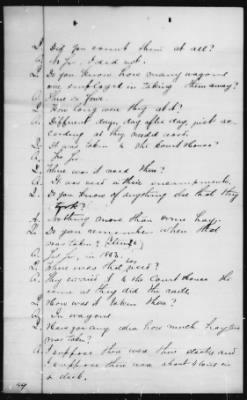 Q. Did you count them at all?
A. No Sir, I did not.
Q. Do you know how many wagons
were employed in taking them away?
A. Three or four.
Q. How long were they at it?
A. Different days, day after day, just ac-
cording as they made
Q. It was taken to the Court House?
A. Yes Sir.
Q. What was it used there?
A. It was used in their
Q. Do you know of anything else that they
took?
A. Nothing more than some hay.
Q. Do you remember when that
was taken?
A. Yes Sir, in 1863.
Q. Where was that used?
A. They carried it to the Court House the
same as they did the rails.
Q. How was it taken there?
A. In wagons.
Q. Have you any idea how much hay there
was taken?
A. I suppose there was three stacks and
I suppose there was about 4 tons in
a stack.